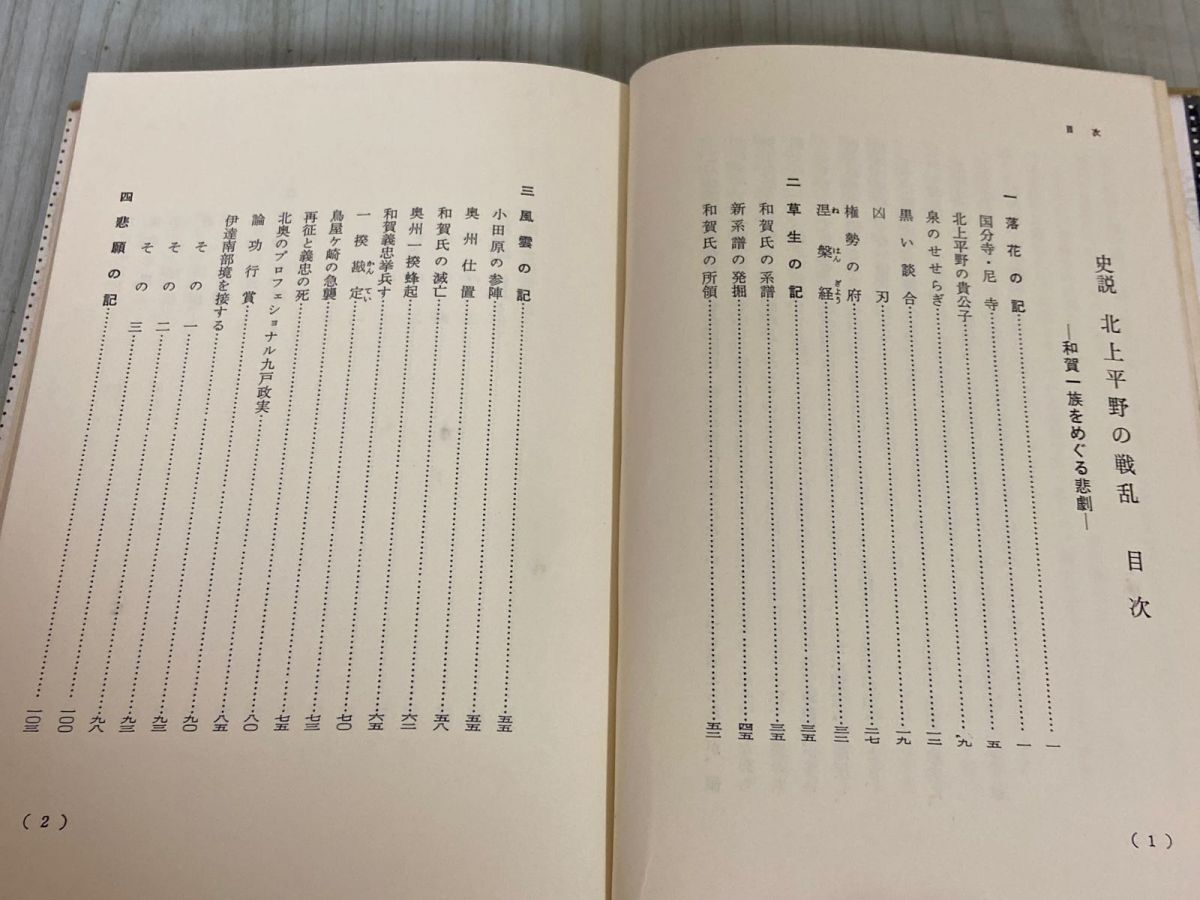 目次
史説 北上平野の戦乱 目次
―和賀一族をめぐる悲劇―
一 落花の記……一
国分寺・尼寺……一
北上平野の貴公子……五
泉のせせらぎ……九
黒い談合……一二
凶刃……一九
権勢の府……二七
涅槃経……三二
ねはんぎょう
二 草生の記……三五
和賀氏の系譜……三五
新系譜の発掘……四五
和賀氏の所領……五二
(1)
三 風雲の記……五五
小田原の参陣……五五
奥州仕置……五八
和賀氏の滅亡……六二
奥州一揆蜂起……六五
和賀義忠挙兵す……七〇
一揆戡定……七三
かんてい
鳥屋ケ崎の急襲……七五
再征と義忠の死……八〇
北奥のプロフェショナル九戸政実……八五
論功行賞……九〇
伊達南部境を接する……九三
その一……九三
その二……九八
その三……一〇〇
四 悲願の記……一〇三
(2)